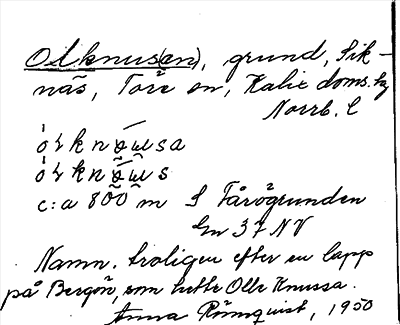 Olknus(en), grund, Sik-
näs, Töre sn, Kalix doms. hg
Norrb. l
c:a 800 m S Fårögrunden
Gn 37 NV
Namn. troligen efter en lapp
på Bergön, som hette Olle Knussa.
Anna Römquist, 1950